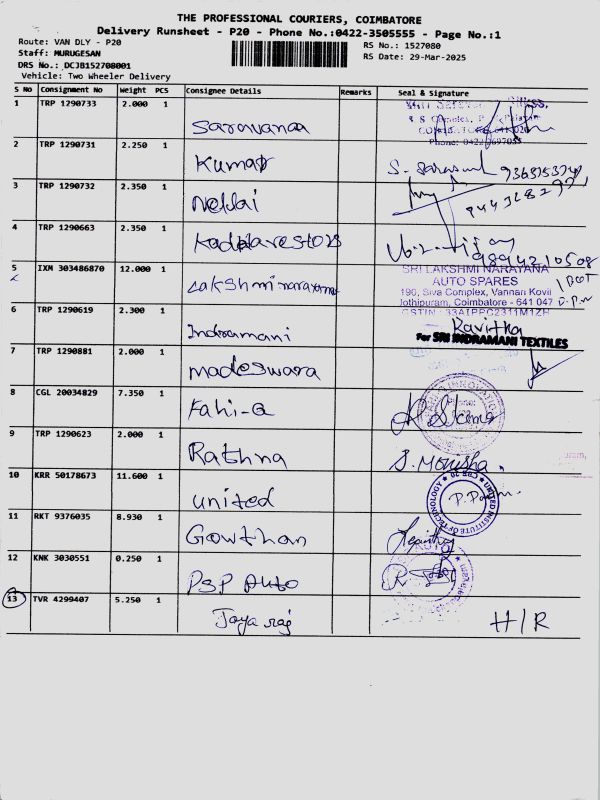 THE PROFESSIONAL COURIERS, COIMBATORE
Delivery Runsheet - P20 - Phone No.:0422-3505555 - Page No.:1
Route: VAN DLY - P20
RS No.: 1527080
Staff: MURUGESAN
RS Date: 29-Mar-2025
DRS No.: DCJB152708001
Vehicle: Two Wheeler Delivery
S No Consignment No Weight PCS Consignee Details Remarks Seal & Signature
1 TRP 1290733 2.000 1
Saravanaa
2 TRP 1290731 2.250 1
Kumar
3 TRP 1290732 2.350 1
Nellai
4 TRP 1290663 2.350 1
9894210508
5 IXM 303486870 12.000 1
Lakshmi narayana
SRI LAKSHMI NARAYANA
AUTO SPARES
190, Siva Complex, Vannan Kovil
Jothipuram, Coimbatore - 641 047
GSTIN : 33AIPPC2311M1ZH
6 TRP 1290619 2.300 1
Indramani
Kavitha
For SRI INDRAMANI TEXTILES
7 TRP 1290881 2.000 1
madeswara
8 CGL 20034829 7.350 1
9 TRP 1290623 2.000 1
Rathna
S. Monisha.
10 KRR 50178673 11.600 1
united
UNITED INSTITUTE OF TECHNOLOGY
11 RKT 9376035 8.930 1
Gowthan
12 KNK 3030551 0.250 1
PSP Auto
13 TVR 4299407 5.250 1
Jaya raj
H/R